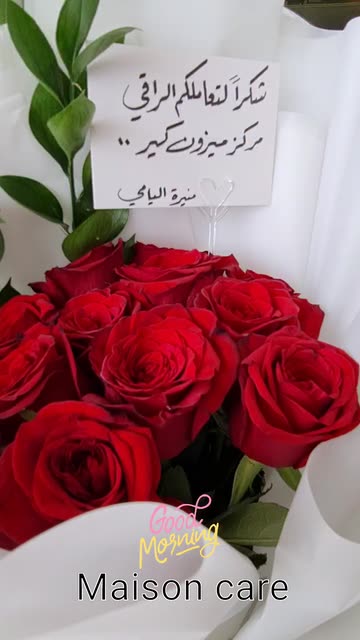 شكراً لتعاملكم الراقي
مركز ميزون كير ..
منيرة اليامي
Good
Morning
Maison care